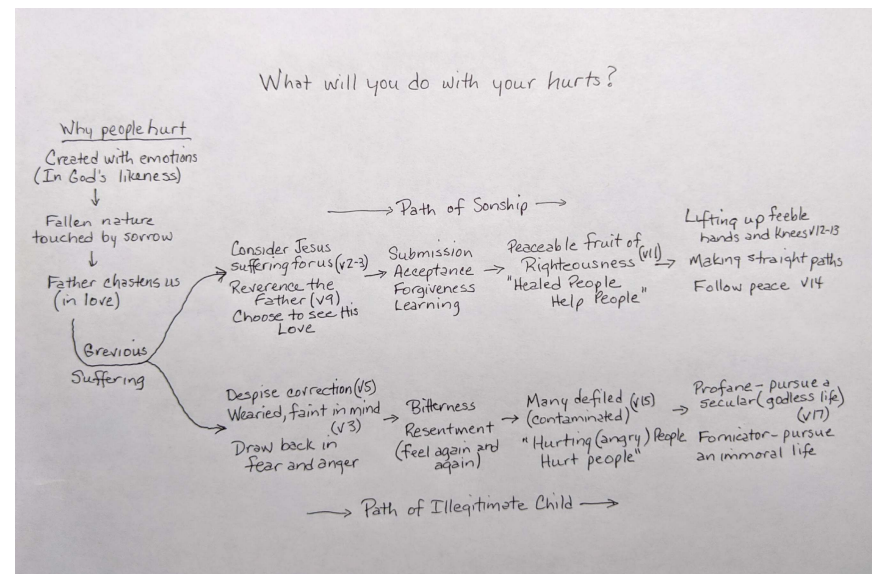 What will you do with your hurts?
Why people hurt
Created with emotions
(In God's likeness)
Fallen nature
touched by sorrow
Father chastens us
(in love)
Grevious
Suffering
Path of Sonship
Consider Jesus
suffering for us (v2-3)
Reverence the
Father (v9)
Choose to see His
Love
Submission
Acceptance
Forgiveness
Learning
Peaceable fruit of
Righteousness (v11)
"Healed People
Help People"
Lifting up feeble
hands and Knees v12-13
Making straight paths
Follow peace v14
Despise correction (v5)
Wearied, faint in mind
(v3)
Draw back in
fear and anger
Bitterness
Resentment
(feel again and
again)
Many defiled (v15)
(contaminated)
"Hurting (angry) People
Hurt people"
Profane - pursue a
secular (godless life)
(v17)
Fornicator - pursue
an immoral life
Path of Illegitimate Child